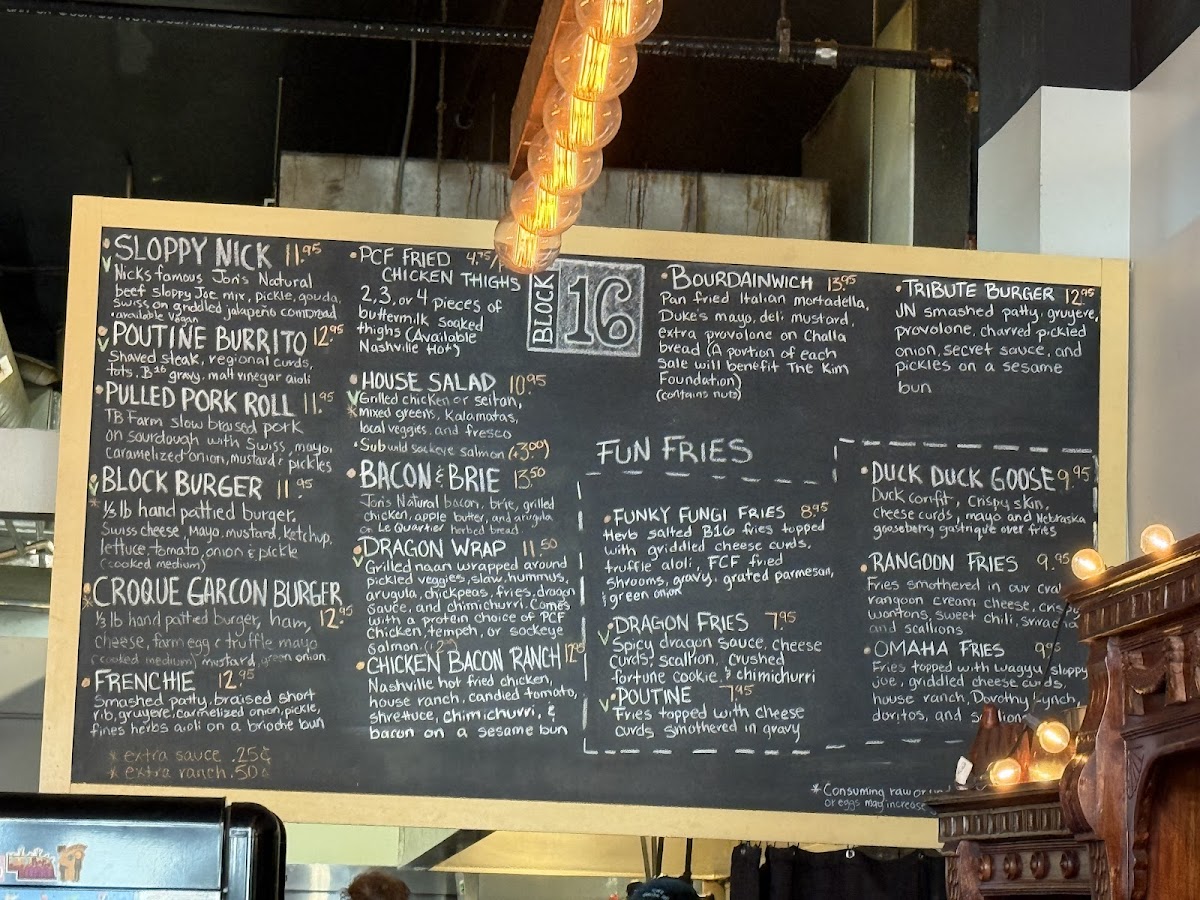 • SLOPPY NICK 11.95
V Nicks famous Jon's Natural
beef sloppy Joe mix, pickle, gouda,
Swiss on griddled jalapeño cornbread
• available vegan
• POUTINE BURRITO 12.95
V Shaved steak, regional curds,
tots, B16 gravy, malt vinegar aioli
• PULLED PORK ROLL 11.95
TB Farm slow braised pork
on sourdough with Swiss, mayo,
caramelized onion, mustard & pickles
• BLOCK BURGER 11.95
V
* ⅓ lb hand pattied burger,
Swiss cheese, mayo, mustard, ketchup,
lettuce, tomato, onion & pickle
(cooked medium)
• CROQUE GARCON BURGER
* ⅓ lb hand pattied burger, ham, 12.95
cheese, farm egg & truffle mayo
(cooked medium) mustard, green onion
• FRENCHIE 12.95
Smashed patty, braised short
rib, gruyere, carmelized onion, pickle,
fines herbs aioli on a brioche bun
* extra sauce .25¢
* extra ranch .50¢
• PCF FRIED 4.75/
CHICKEN THIGHS
2, 3, or 4 pieces of
buttermilk soaked
thighs (Available
Nashville Hot)
• HOUSE SALAD 10.95
V Grilled chicken or seitan,
* mixed greens, Kalamatas,
local veggies, and fresco
• Sub wild sockeye salmon (+3.00)
• BACON & BRIE 13.50
Jon's Natural bacon, brie, grilled
chicken, apple butter, and arugula
on Le Quartier herbed bread
• DRAGON WRAP 11.50
V Grilled naan wrapped around
pickled veggies, slaw, hummus,
arugula, chickpeas, fries, dragon
sauce, and chimichurri. Comes
with a protein choice of PCF
chicken, tempeh, or sockeye
salmon.
• CHICKEN BACON RANCH 12.95
Nashville hot fried chicken,
house ranch, candied tomato,
shrettuce, chimichurri, &
bacon on a sesame bun
BLOCK 16
• BOURDAINWICH 13.95
Pan fried Italian mortadella,
Duke's mayo, deli mustard,
extra provolone on Challa
bread (A portion of each
sale will benefit The Kim
Foundation)
(contains nuts)
• TRIBUTE BURGER 12.95
JN smashed patty, gruyere,
provolone, charred pickled
onion, secret sauce, and
pickles on a sesame
bun
FUN FRIES
• FUNKY FUNGI FRIES 8.95
Herb salted B16 fries topped
with griddled cheese curds,
truffle aioli, FCF fried
shrooms, gravy, grated parmesan,
green onion
• DRAGON FRIES 7.95
V Spicy dragon sauce, cheese
curds, scallion, crushed
fortune cookie, & chimichurri
• POUTINE 7.95
V Fries topped with cheese
curds smothered in gravy
• DUCK DUCK GOOSE 9.95
Duck confit, crispy skin,
cheese curds, mayo and Nebraska
gooseberry gastrique over fries
• RANGOON FRIES 9.95
Fries smothered in our crab
rangoon cream cheese, crispy
wontons, sweet chili, sriracha
and scallions
• OMAHA FRIES 9.95
Fries topped with wagyu sloppy
joe, griddled cheese curds,
house ranch, Dorothy Lynch,
doritos, and scallions
* Consuming raw or
or eggs may increase